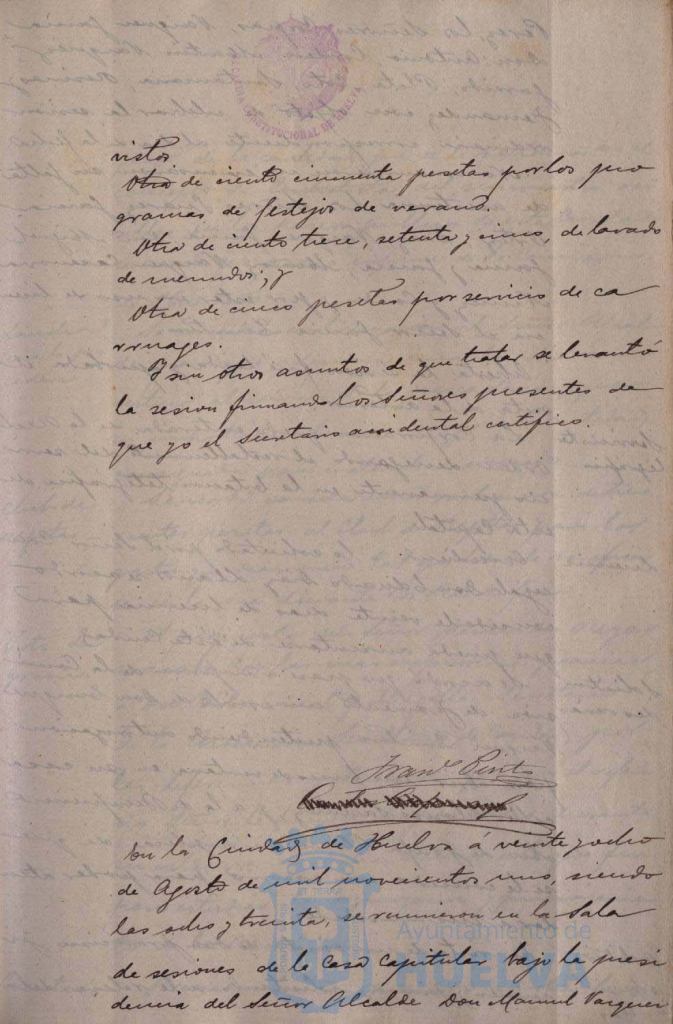 ALCALDIA CONSTITUCIONAL DE HUELVA
vistos
Otra de ciento cincuenta pesetas por los pro
gramas de festejos de verano.
Otra de ciento trece, setenta y cinco, de lavado
de menudos; y
Otra de cinco pesetas por servicio de ca
rruages.
Y sin otros asuntos de que tratar se levantó
la sesion firmando los Señores presentes de
que yo el Secretario accidental certifico.
Franco Pinto
En la Ciudad de Huelva á veinte y ocho
de Agosto de mil novecientos uno, siendo
las ocho y treinta, se reunieron en la Sala
de sesiones de la casa capitular bajo la presi
dencia del Señor Alcalde Don Manuel Vazquez
Ayuntamiento de
HUELVA